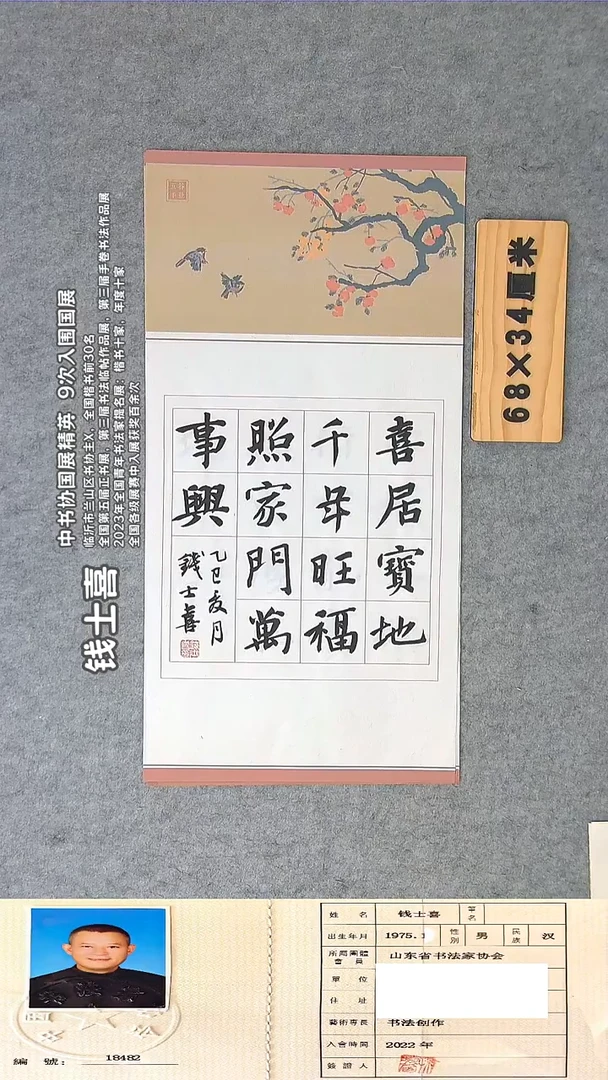 钱士喜
中书协国展精英 9次入围国展
临沂市兰山区书协主X，全国楷书前30名
全国第五届正书展，第三届书法临帖作品展，第三届手卷书法作品展
2023年全国青年书法家提名展：楷书十家，年度十家
全国各级展赛中入展获奖百余次
68×34厘米
喜居寶地
千年旺福
照家門萬
事興
乙巳夏月
钱士喜
姓名 钱士喜 筆名
出生年月 1975.1 性别 男 民族 汉
所屬團體會員 山东省书法家协会
單位
住址
藝術專長 书法创作
入會時間 2022年
簽證人
編號： 18482